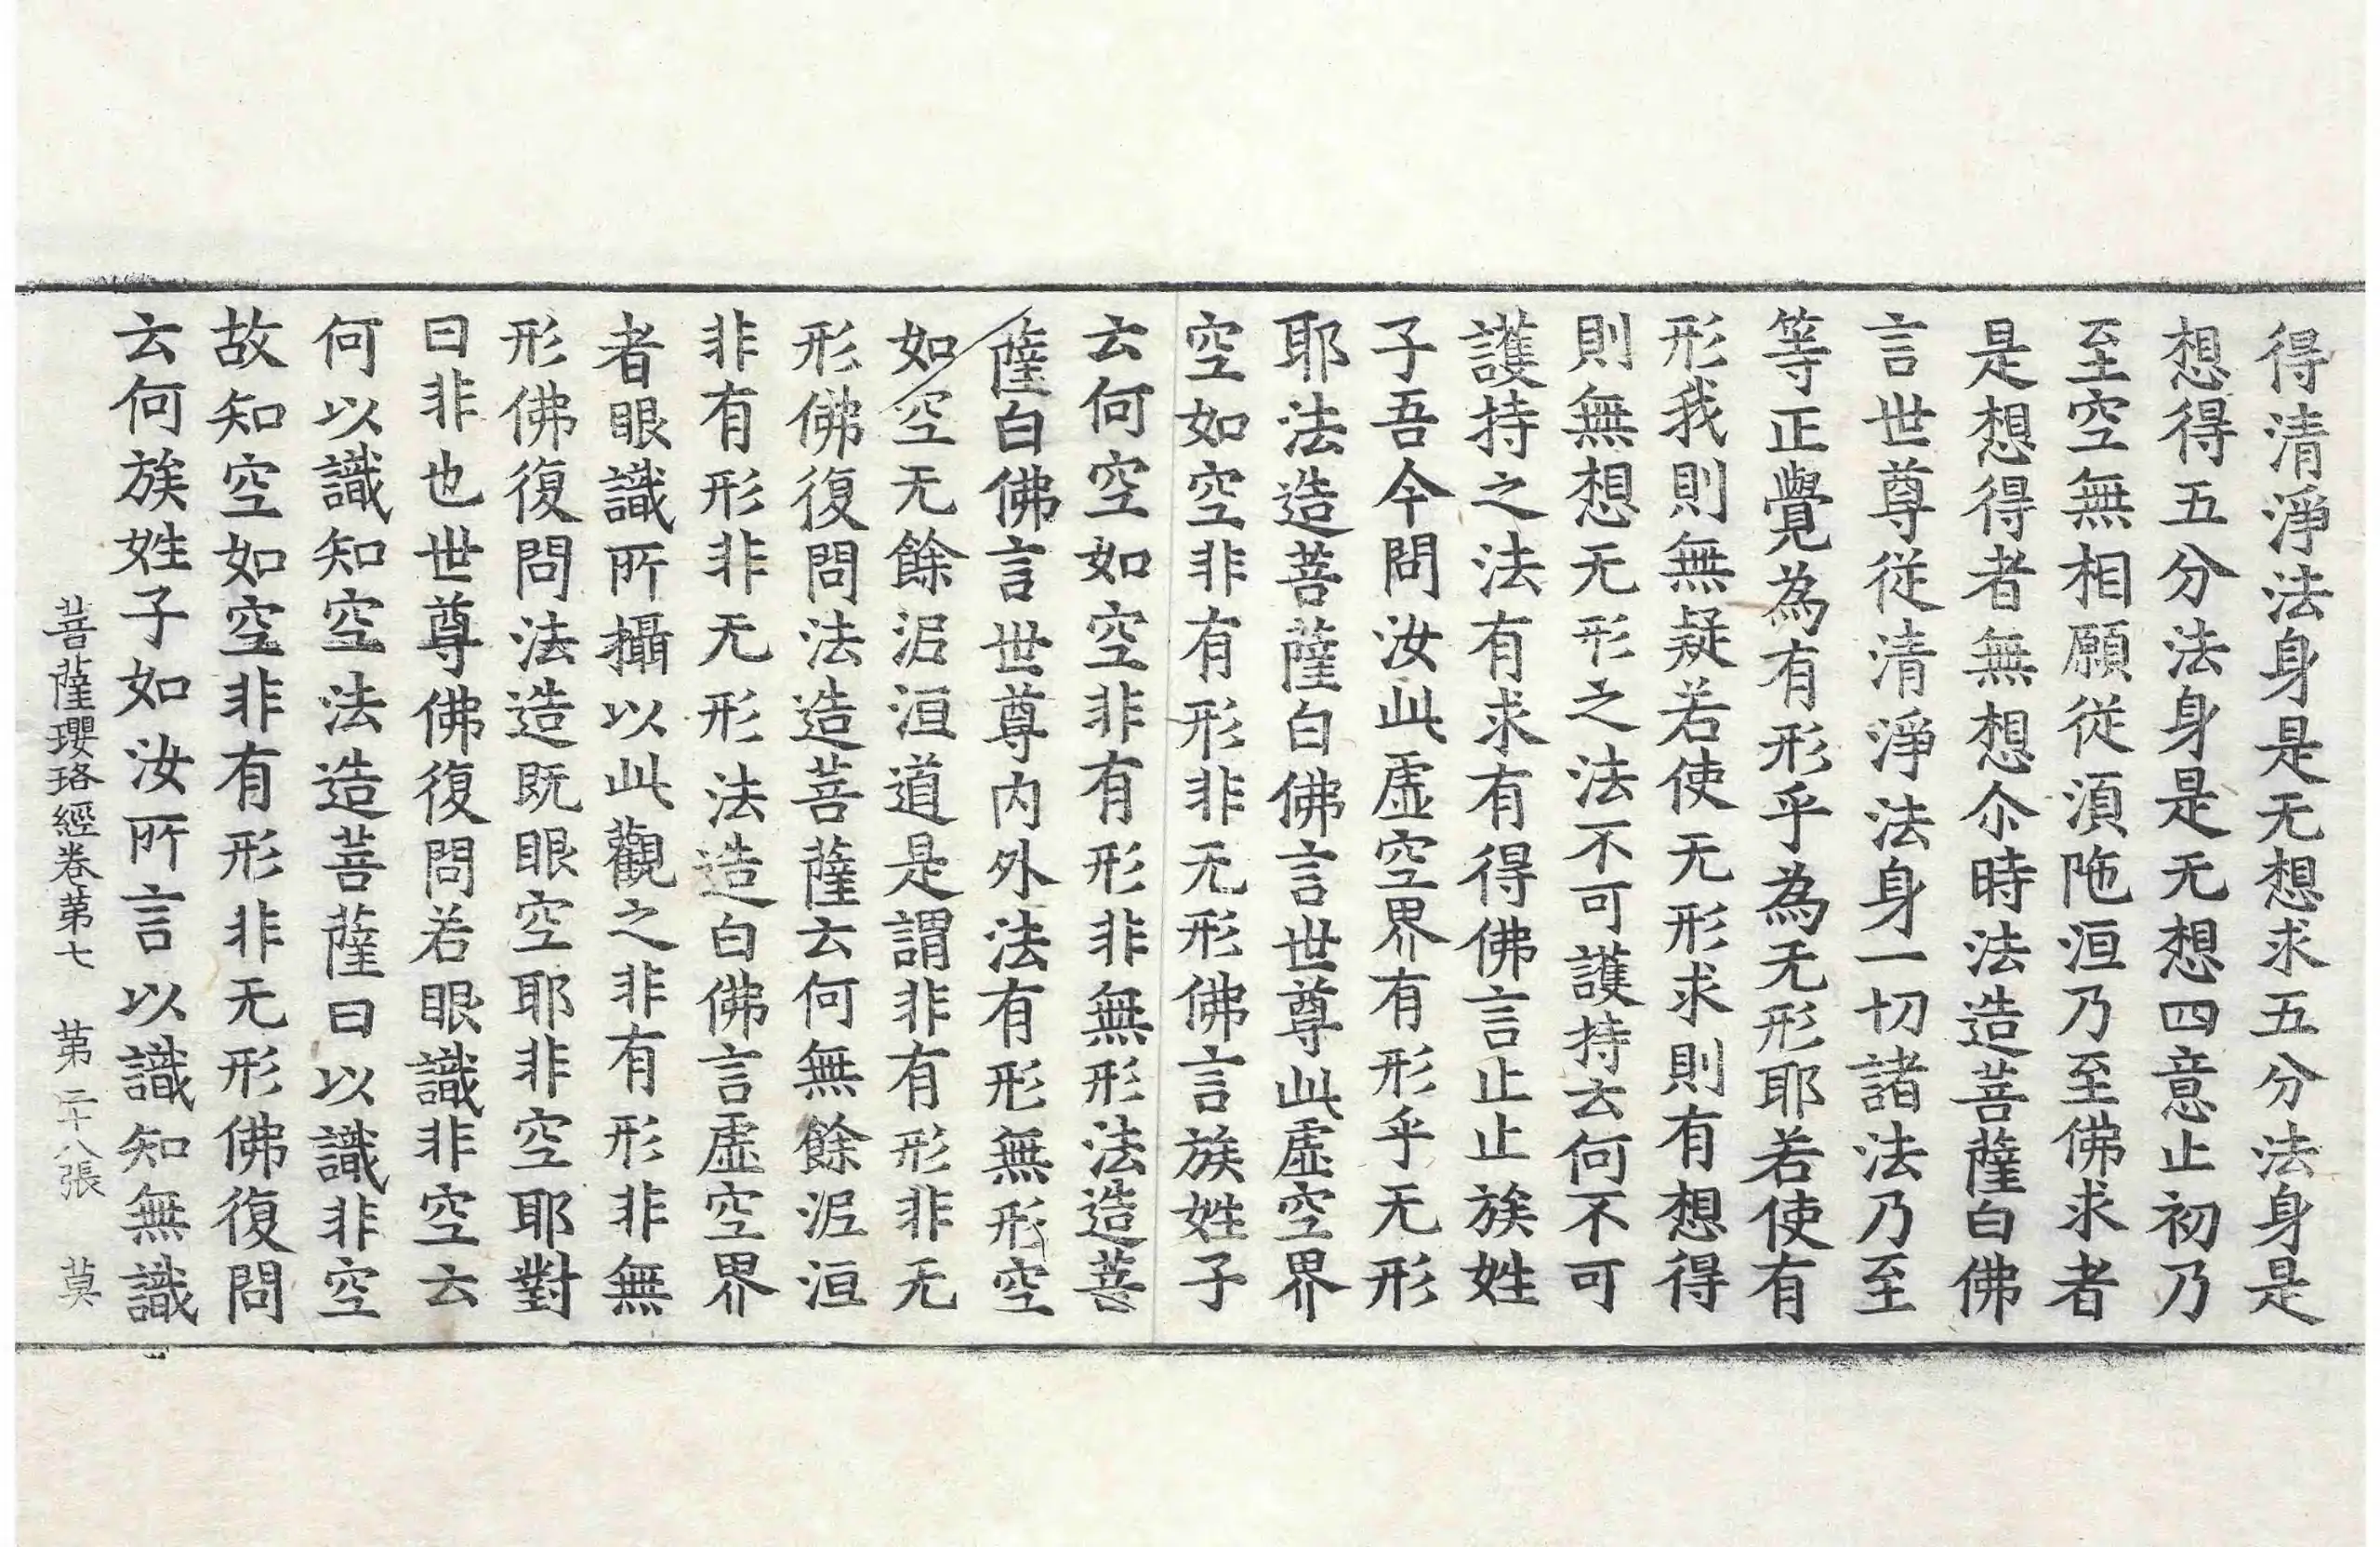 得清淨法身是无想求五分法身是
想得五分法身是无想四意止初乃
至空無相願從湏陁洹乃至佛求者
是想得者無想尒時法造菩薩白佛
言世尊從清淨法身一切諸法乃至
等正覺為有形乎為无形耶若使有
形我則無疑若使无形求則有想得
則無想无形之法不可護持云何不可
護持之法有求有得佛言止止族姓
子吾今問汝此虛空界有形乎无形
耶法造菩薩白佛言世尊此虛空界
空如空非有形非无形佛言族姓子
云何空如空非有形非無形法造菩
薩白佛言世尊內外法有形無形空
如空无餘泥洹道是謂非有形非无
形佛復問法造菩薩云何無餘泥洹
非有形非无形法造白佛言虛空界
者眼識所攝以此觀之非有形非無
形佛復問法造既眼空耶非空耶對
曰非也世尊佛復問若眼識非空云
何以識知空法造菩薩曰以識非空
故知空如空非有形非无形佛復問
云何族姓子如汝所言以識知無識
菩薩瓔珞經卷第七 第二十八張 莫